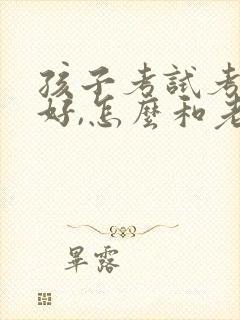 孩子考試考
好,怎麼和老
畢露